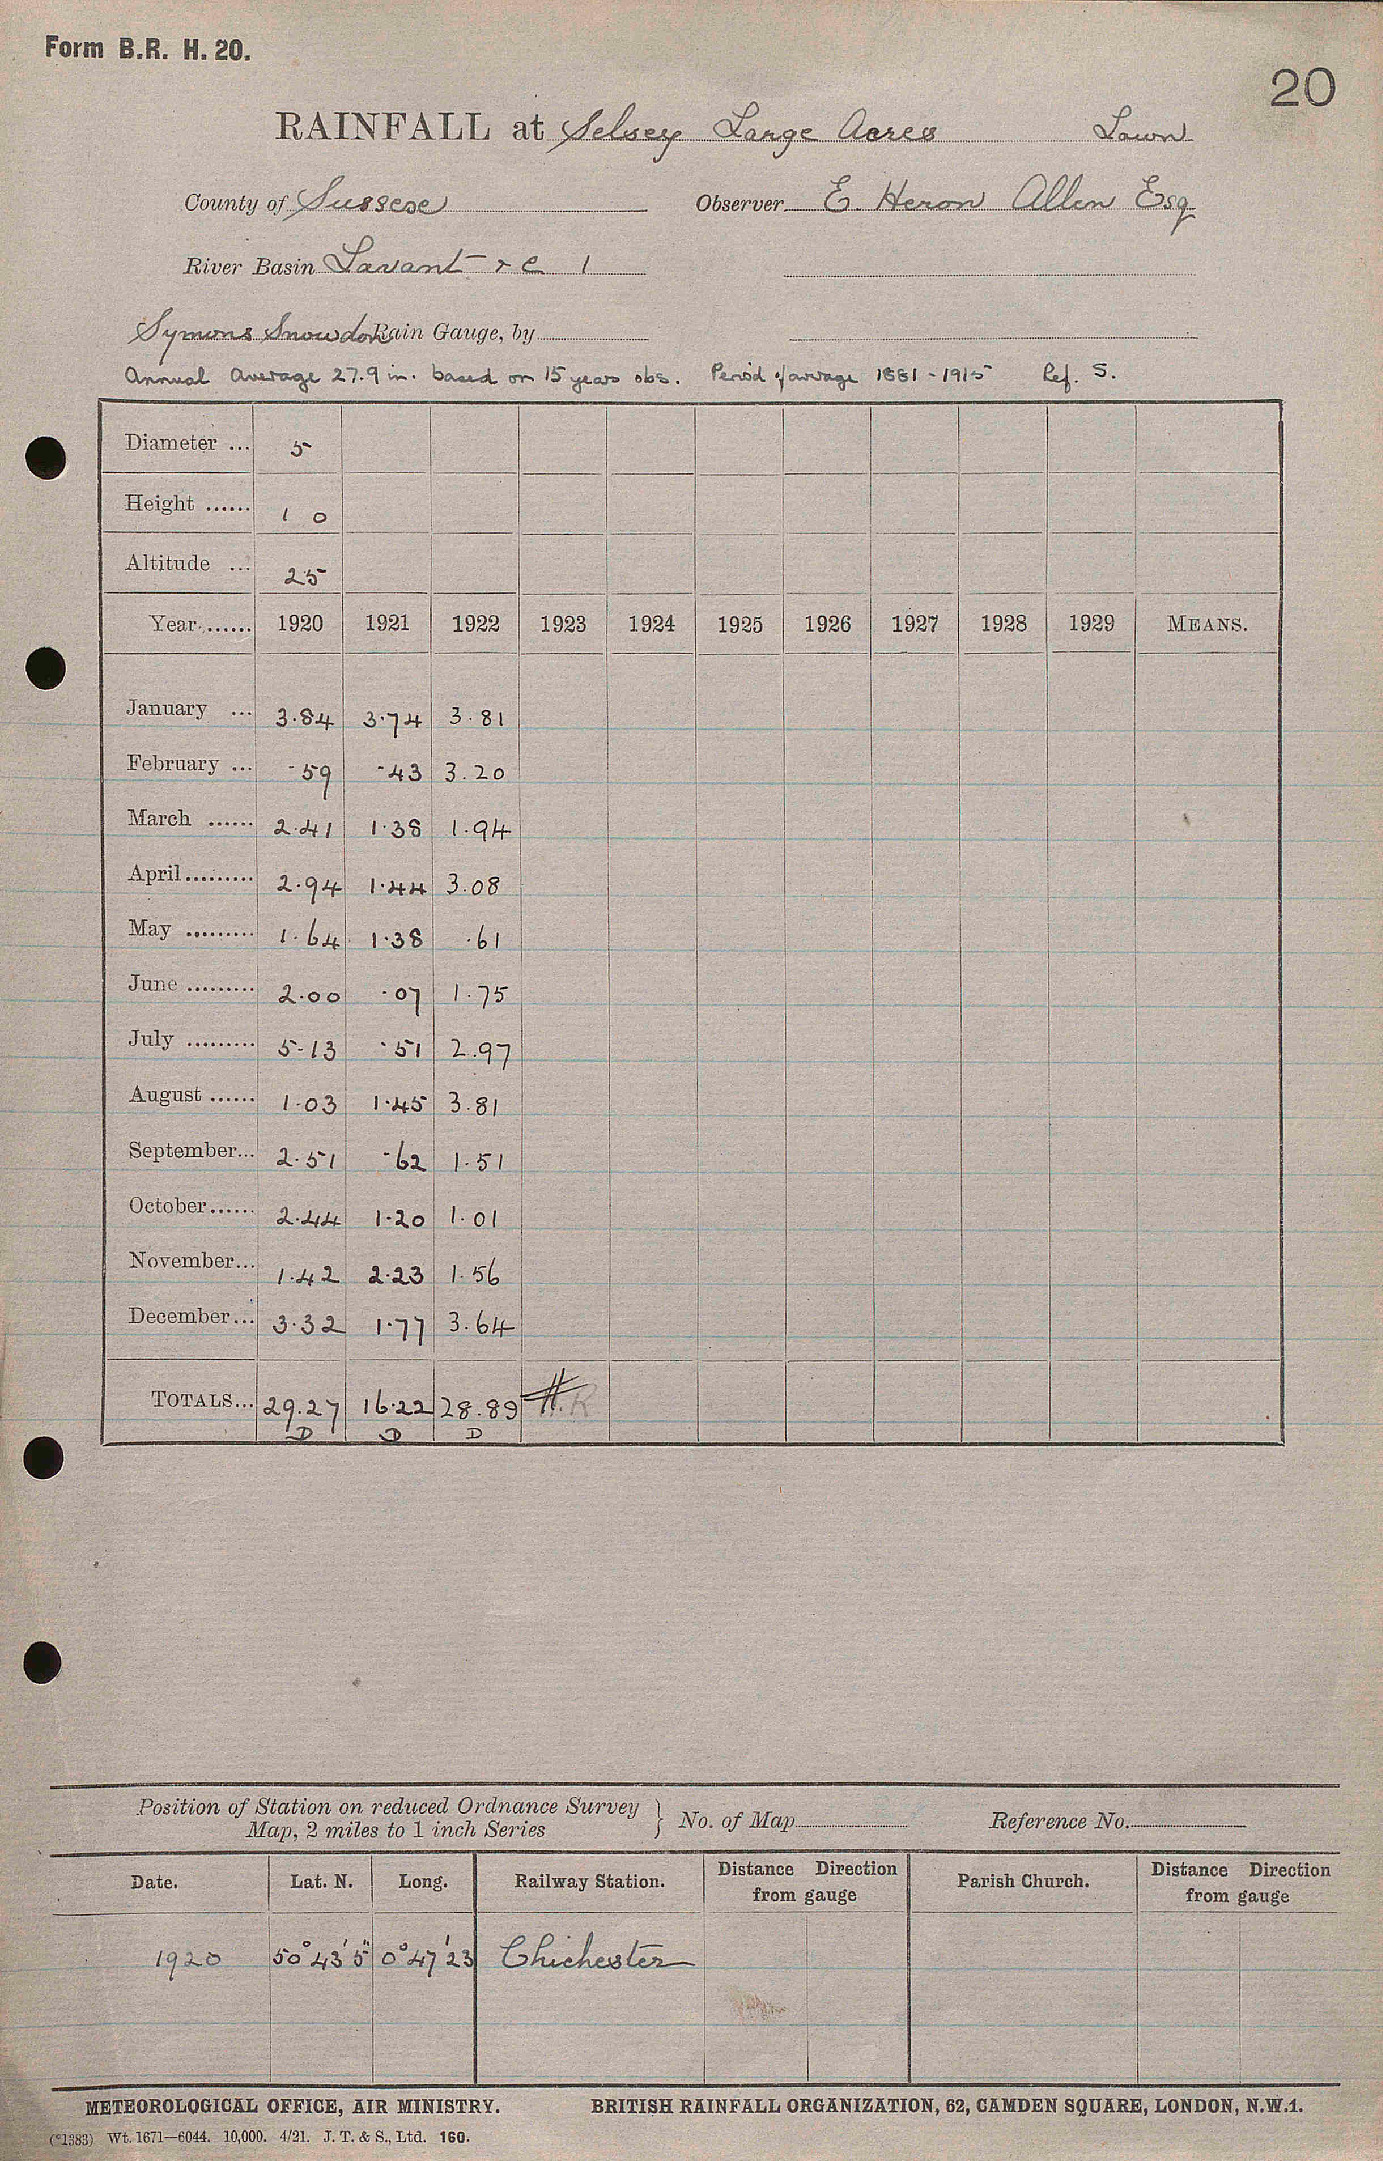 Form B.R. H. 20.
20
RAINFALL at Selsey Large Acres Lawn
County of Sussex Observer E. Heron Allen Esq
River Basin Lavant &c 1
Symons Snowdon Rain Gauge, by
Annual Average 27.9 in. based on 15 years obs. Period of average 1881-1915 Ref. S.
Diameter ... 5
Height ...... 1 0
Altitude ... 25
Year ...... 1920 1921 1922 1923 1924 1925 1926 1927 1928 1929 MEANS.
January ... 3.84 3.74 3.81
February ... .59 .43 3.20
March ...... 2.41 1.38 1.94
April ......... 2.94 1.44 3.08
May ......... 1.64 1.38 .61
June ......... 2.00 .07 1.75
July ......... 5.13 .51 2.97
August ...... 1.03 1.45 3.81
September... 2.51 .62 1.51
October...... 2.44 1.20 1.01
November... 1.42 2.23 1.56
December... 3.32 1.77 3.64
TOTALS... 29.27 16.22 28.89
D D D
Position of Station on reduced Ordnance Survey
Map, 2 miles to 1 inch Series } No. of Map Reference No.
Date. Lat. N. Long. Railway Station. Distance Direction from gauge Parish Church. Distance Direction from gauge
1920 50° 43' 5" 0° 47' 23 Chichester
METEOROLOGICAL OFFICE, AIR MINISTRY. BRITISH RAINFALL ORGANIZATION, 62, CAMDEN SQUARE, LONDON, N.W.1.
(*1383) Wt. 1671—6044. 10,000. 4/21. J. T. & S., Ltd. 160.